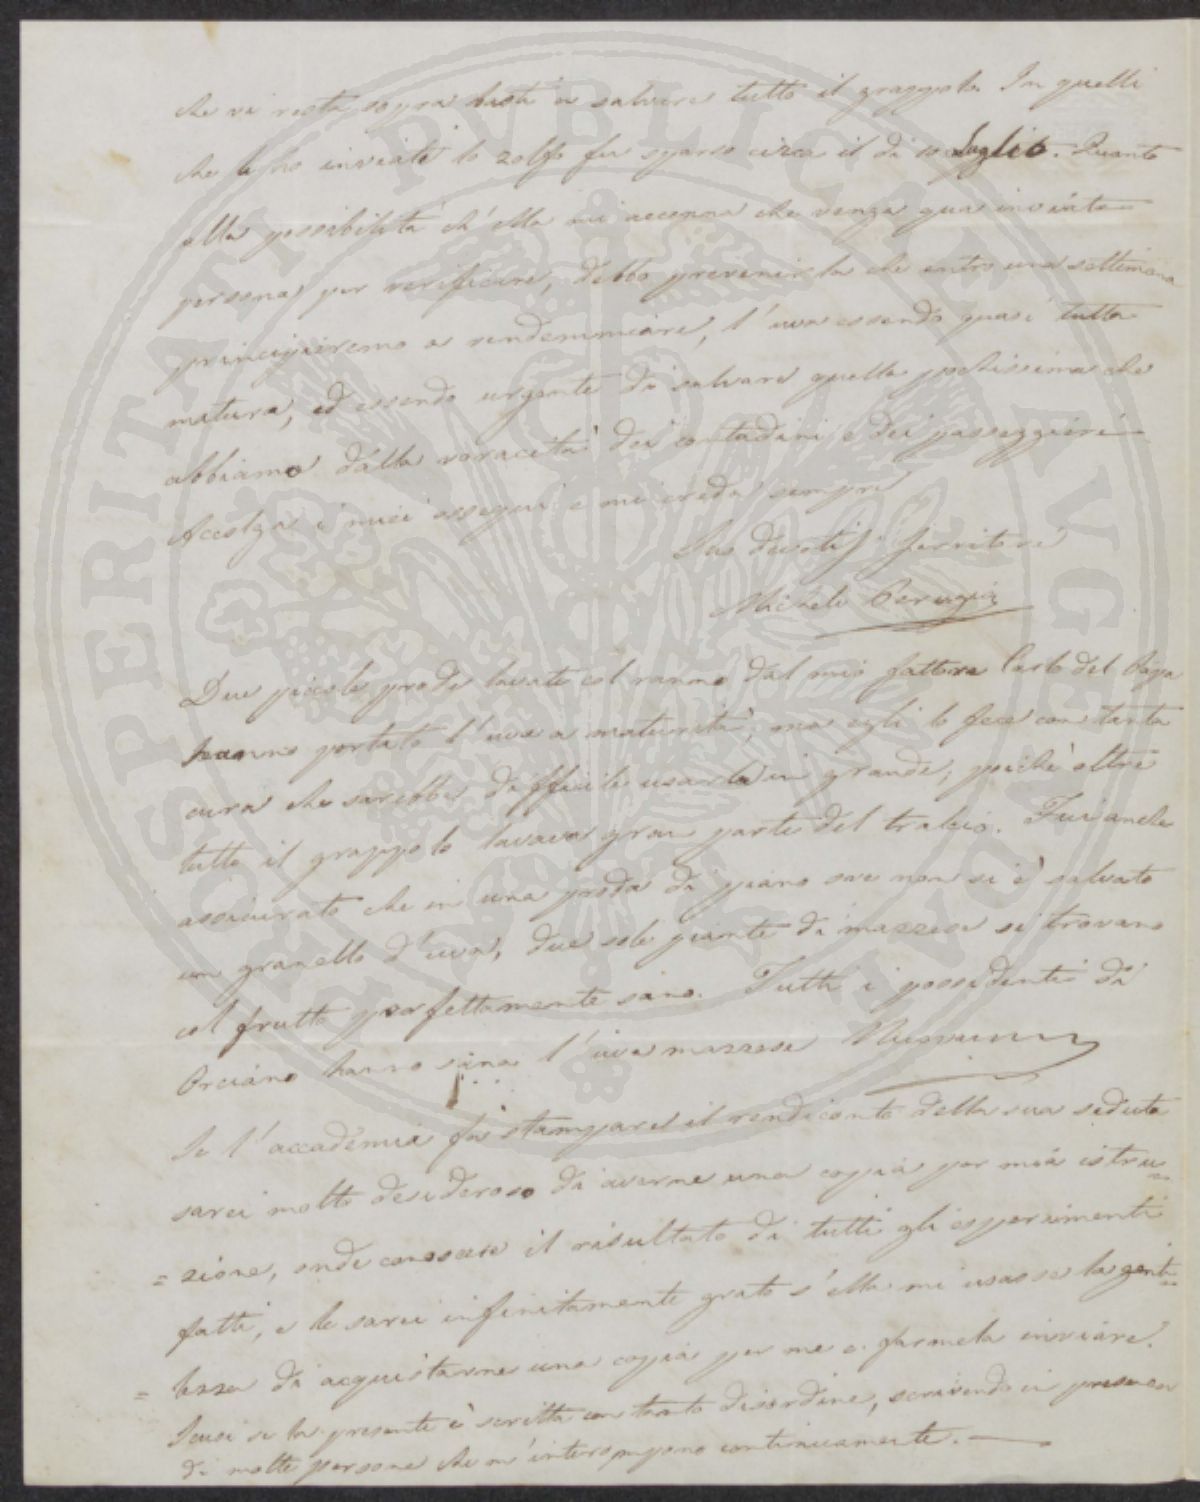 che vi resta sopra basti a salvare tutto il grappolo. In quelli
che le ho inviati lo zolfo fu sparso circa il dì 10 Luglio. Quanto
alla possibilità ch'ella mi accenna che venga qua inviata
persona per verificare, debbo prevenirla che entro una settimana
principieremo a vendemmiare, l'uva essendo quasi tutta
matura, ed essendo urgente di salvare quella pochissima che
abbiamo dalla voracità dei contadini e dei passeggieri
Accolga i miei ossequi e mi creda sempre
Suo devotis. servitore
Michele Perugia
Due piccole prode lavate col ranno dal mio fattore Carlo del Papa
hanno portato l'uva a maturità, ma egli lo fece con tanta
cura che sarebbe difficile usarla in grande, poichè oltre
tutto il grappolo lavava gran parte del tralcio. Fui anche
assicurato che in una proda di piano ove non si è salvato
un granello d'uva, due sole piante di mazzese si trovano
col frutto perfettamente sano. Tutti i possidenti di
Orciano hanno sana l'uva mazzese
Se l'accademia fa stampare il rendiconto della sua seduta
sarei molto desideroso di averne una copia per mia istru=
=zione, onde conoscere il risultato di tutti gli esperimenti
fatti, e le sarei infinitamente grato s'ella mi usasse la genti=
=lezza di acquistarne una copia per me e farmela inviare.
Scusi se la presente è scritta con tanto disordine, scrivendo in presenza
di molte persone che m'interrompono continuamente. —
PROSPERITATI PVBLICAE AVGENDAE